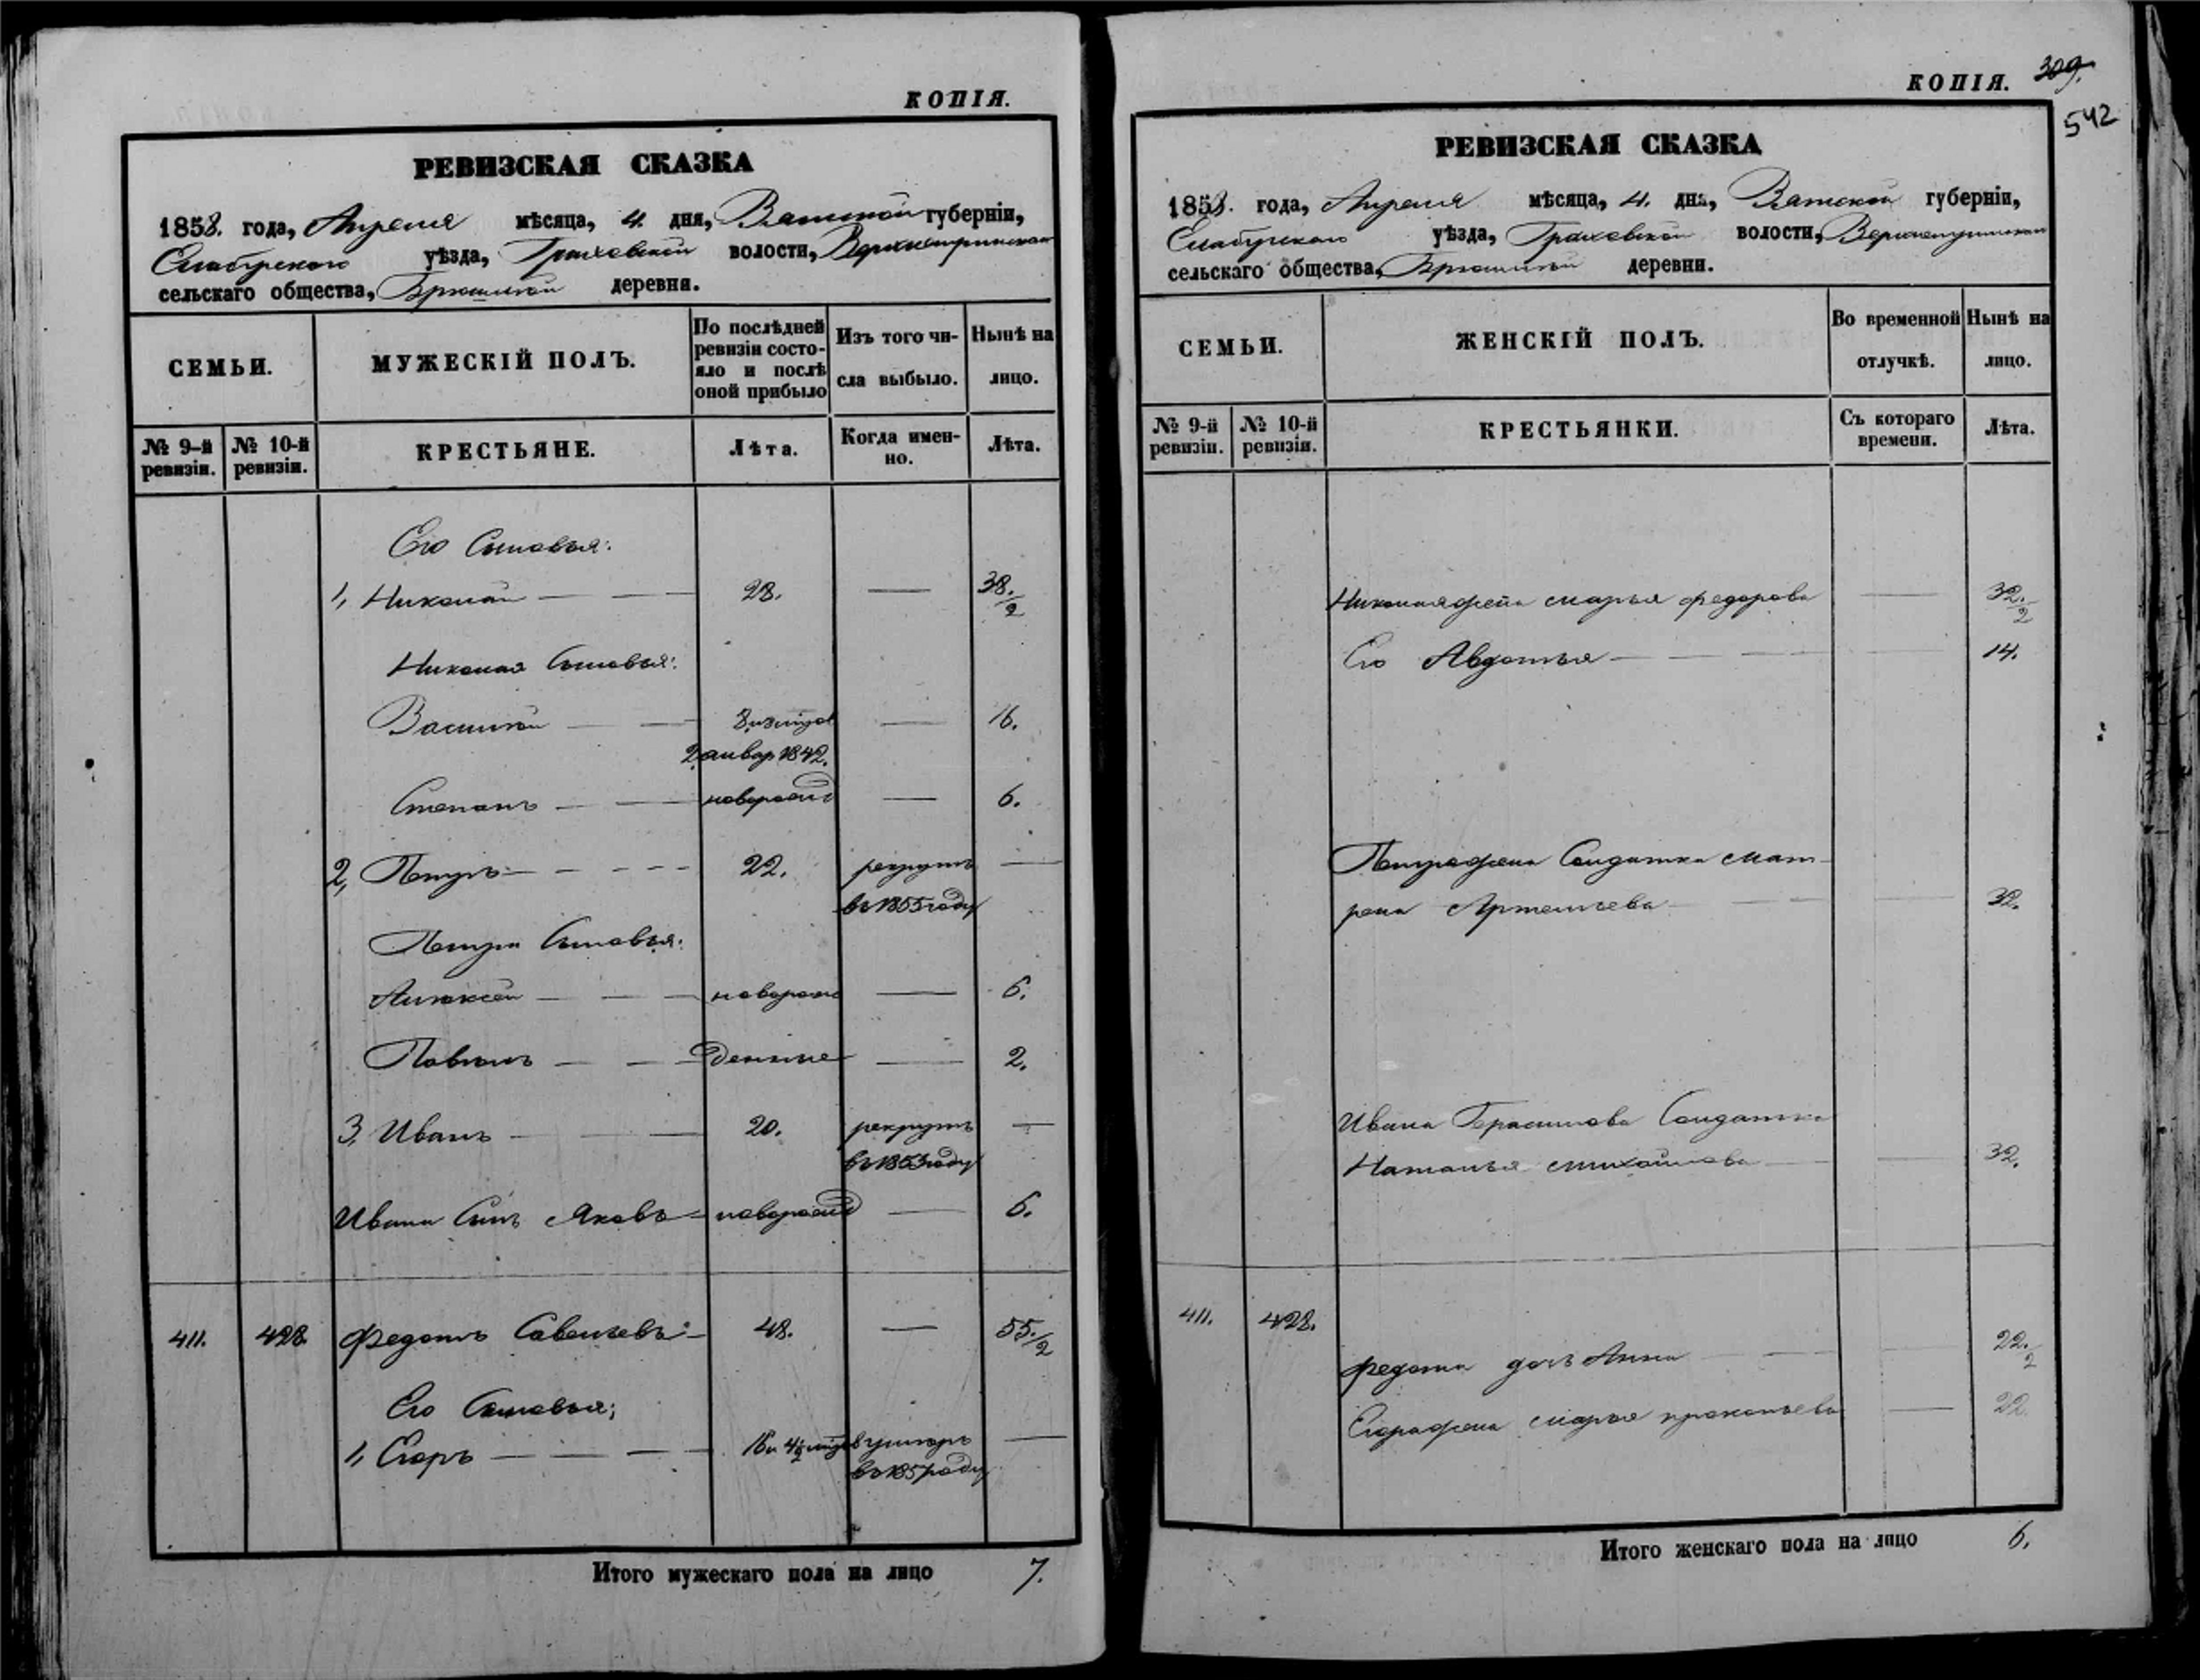 КОПІЯ.
РЕВИЗСКАЯ СКАЗКА
1858. года, Апреля мѣсяца, 4. дня, Вятской губерніи,
Елабугского уѣзда, Граховской волости,
сельскаго общества, деревни.
СЕМЬИ.
МУЖЕСКІЙ ПОЛЪ.
По послѣдней ревизіи состояло и послѣ оной прибыло
Изъ того числа выбыло.
Нынѣ на лицо.
№ 9-й ревизіи.
№ 10-й ревизіи.
КРЕСТЬЯНЕ.
Лѣта.
Когда именно.
Лѣта.
Его Сыновья:
1, Николай — — 28. — 38./2
Николая Сыновья:
Василий — — 8 — 16.
2 январ 1842.
Степанъ — — новорожд — 6.
2, Петръ — - - - - 22. рекрутъ —
въ 1855 году
Петра Сыновья:
Алексей — — — новорож — 6.
Павелъ — — — денные — 2.
3, Иванъ — — 20. рекрутъ —
въ 1853 году
Ивана Сынъ Яковъ — новорожд — 6.
411. 428. Федотъ Савельевъ — 48. — 55./2
Его Сыновья;
1, Егоръ — — — 16 и 4 1/2 умеръ —
въ 1857 году
Итого мужескаго пола на лицо 7.
КОПІЯ. 309.
542
РЕВИЗСКАЯ СКАЗКА
1858. года, Апреля мѣсяца, 4. дня, Вятской губерніи,
Елабугского уѣзда, Граховской волости,
сельскаго общества, деревни.
СЕМЬИ.
ЖЕНСКІЙ ПОЛЪ.
Во временной отлучкѣ.
Нынѣ на лицо.
№ 9-й ревизіи.
№ 10-й ревизіи.
КРЕСТЬЯНКИ.
Съ котораго времени.
Лѣта.
Николая жена Марья Федорова — 32./2
Его Авдотья — — — 14.
Петра жена Солдатка Мат-
рена Артемьева — — 32.
Ивана Герасимова Солдатка
Наталья Михайлова — — 32.
411. 428.
Федота дочь Анна — — 22./2
Егора жена Марья Прокопьева — 22.
Итого женскаго пола на лицо 6.